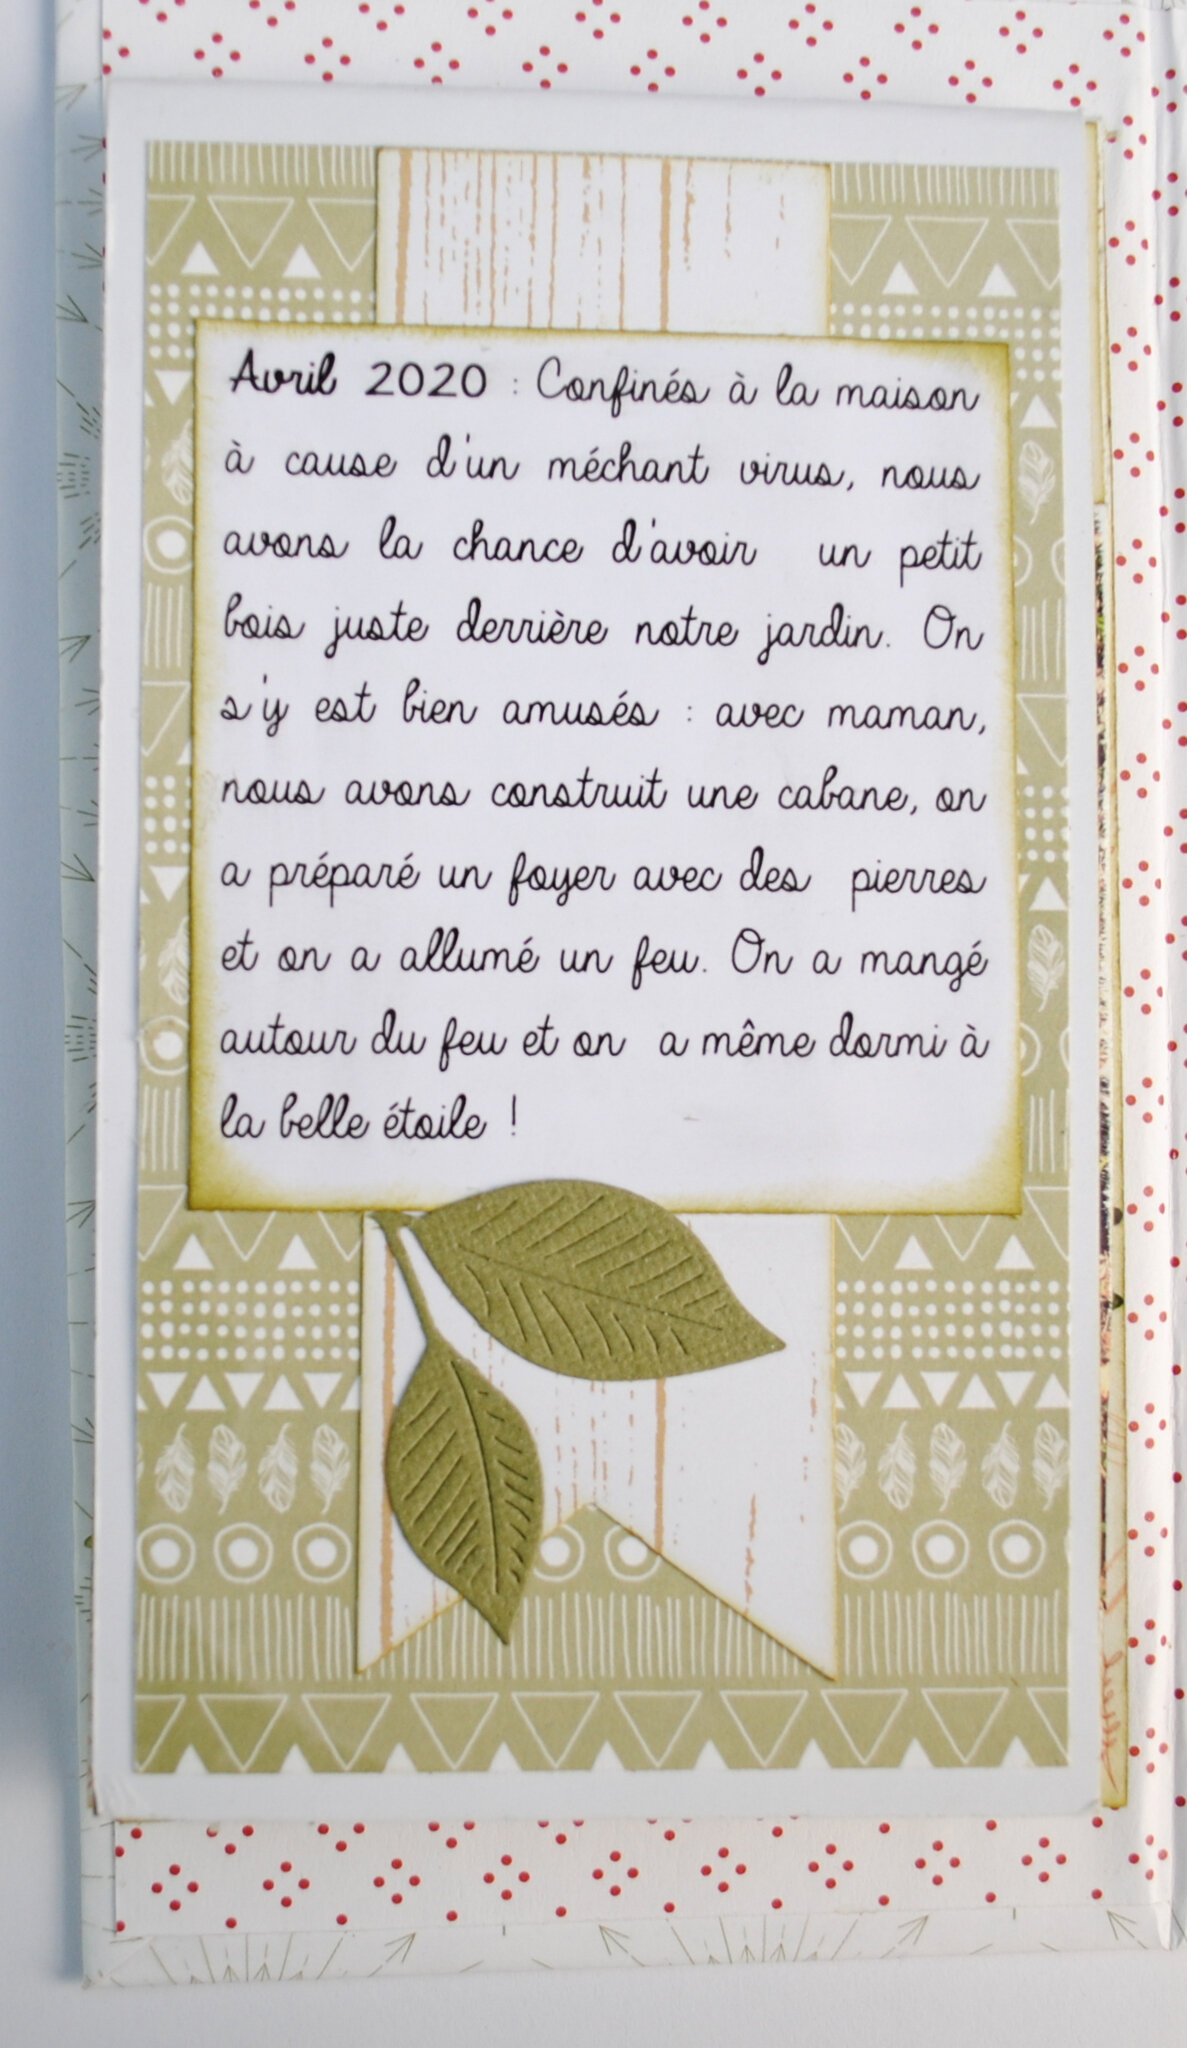 Avril 2020 : Confinés à la maison
à cause d'un méchant virus, nous
avons la chance d'avoir un petit
bois juste derrière notre jardin. On
s'y est bien amusés : avec maman,
nous avons construit une cabane, on
a préparé un foyer avec des pierres
et on a allumé un feu. On a mangé
autour du feu et on a même dormi à
la belle étoile !